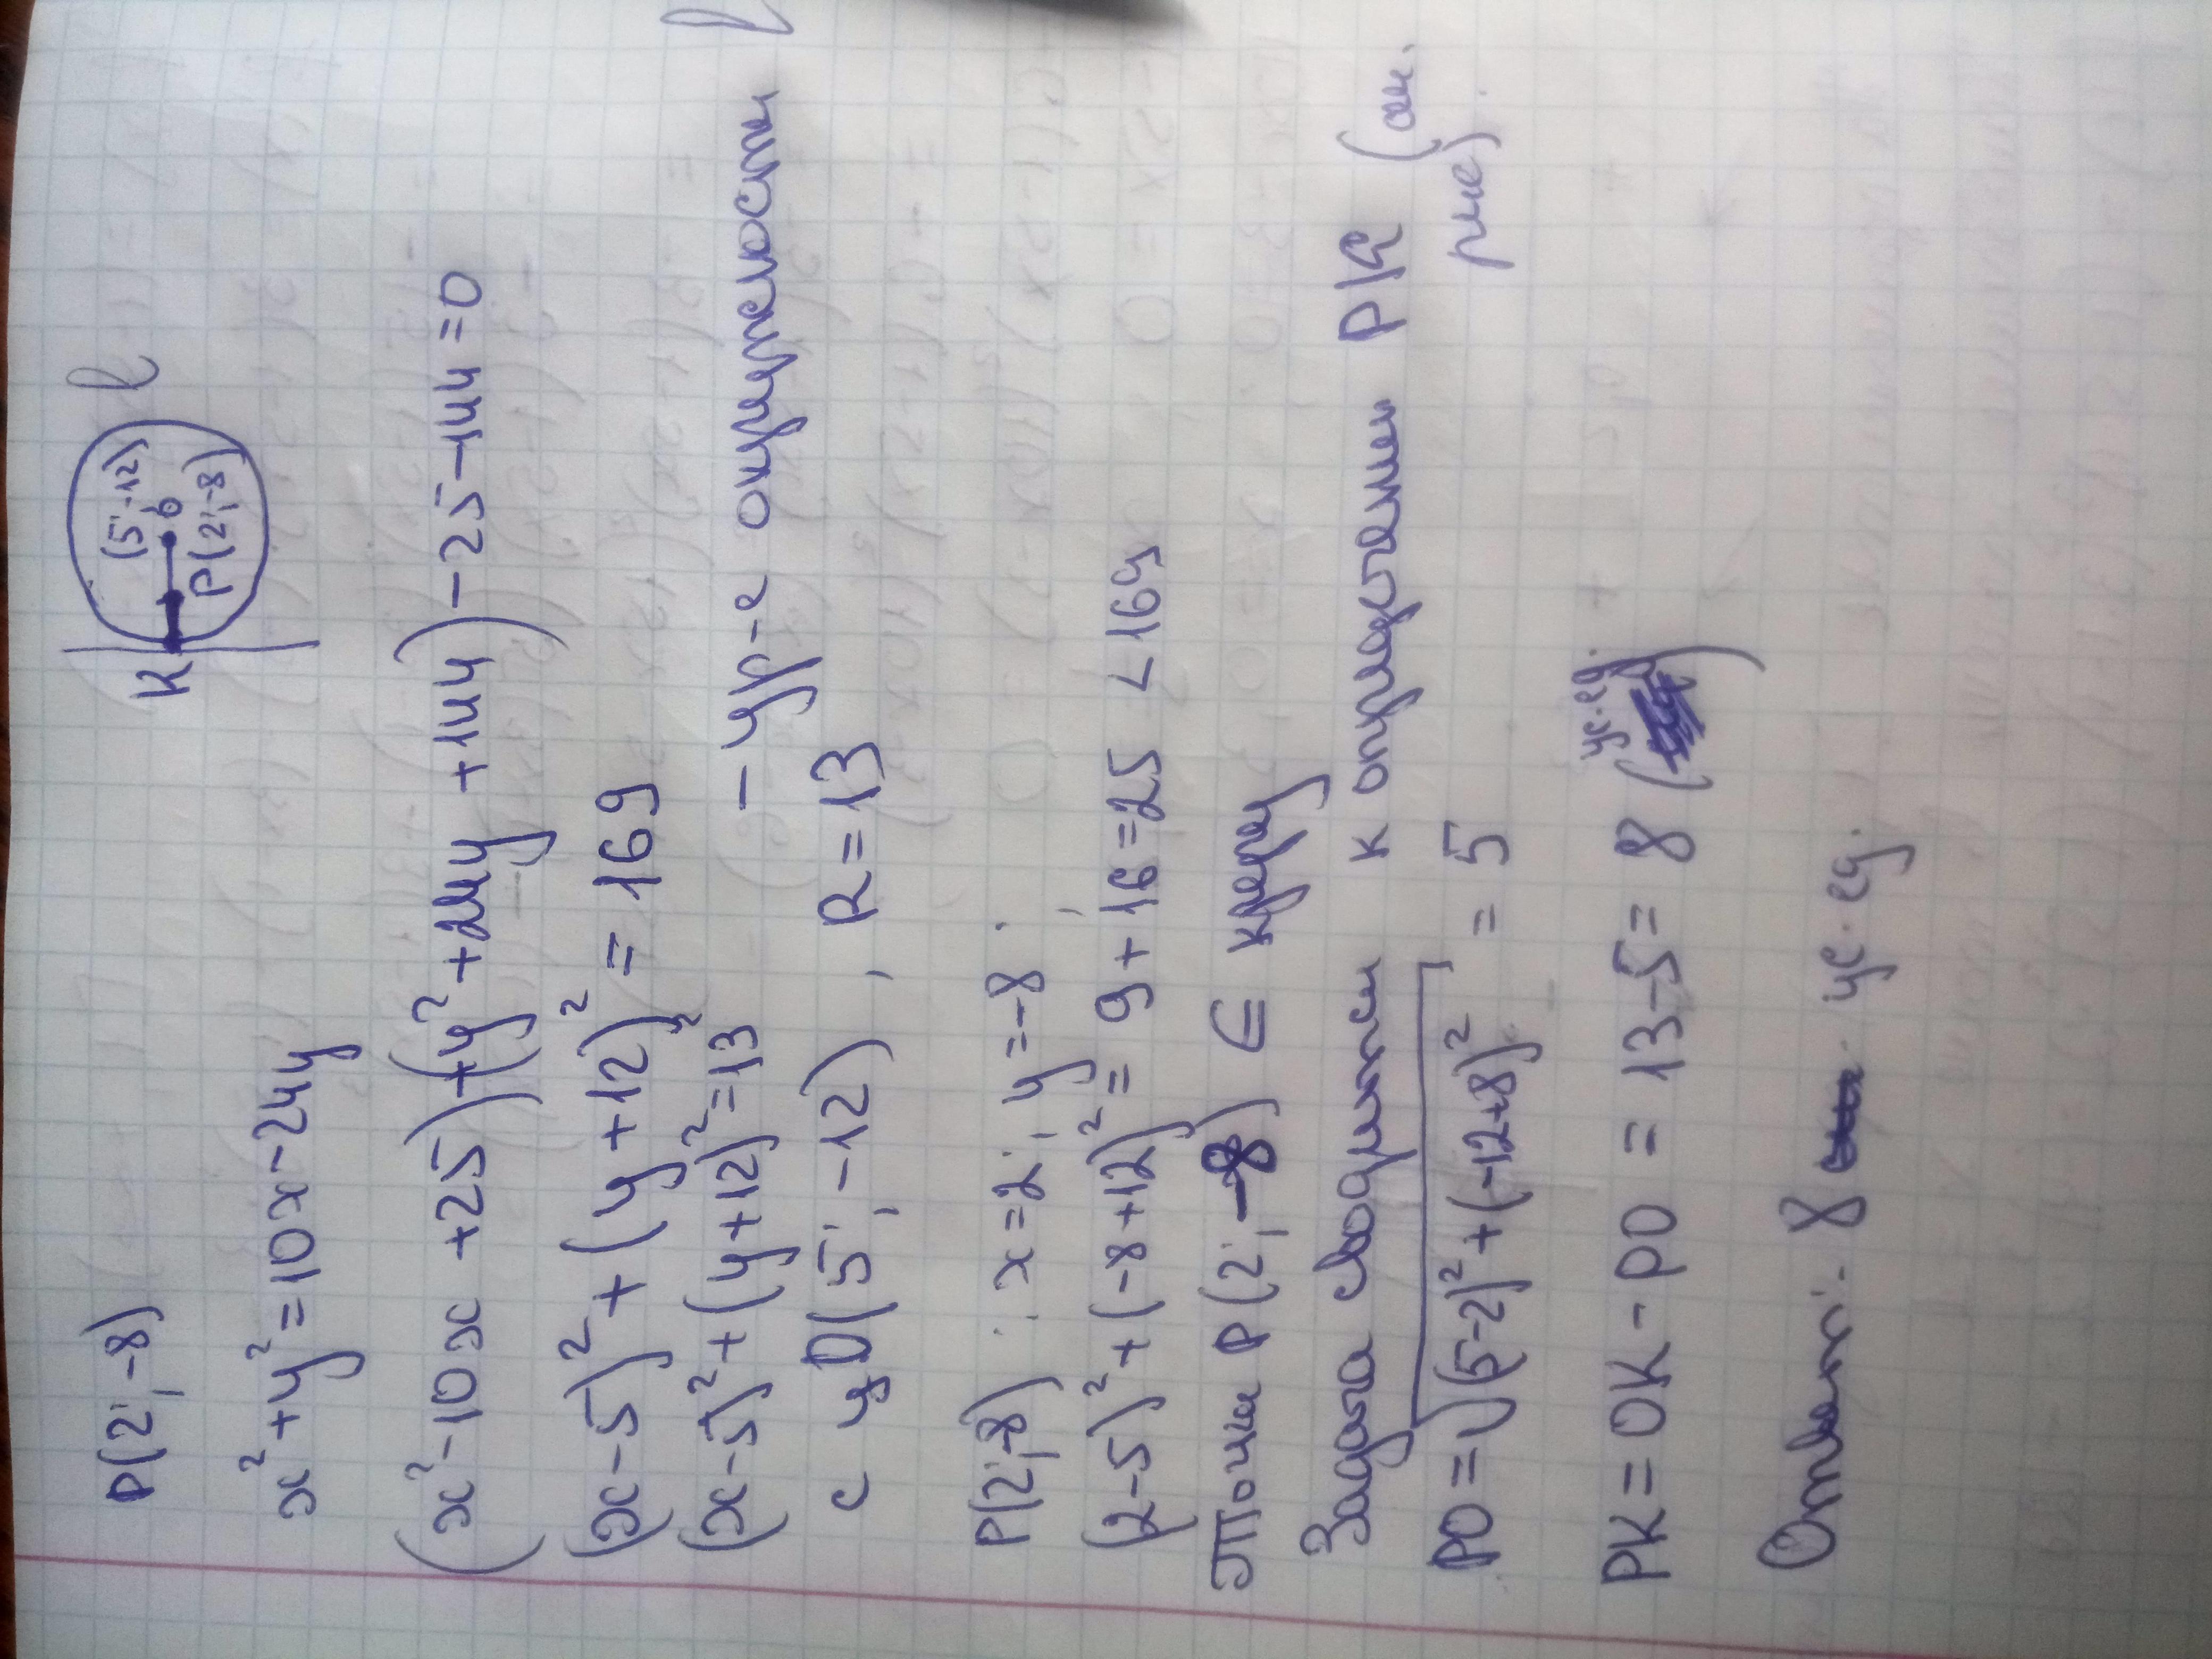 P(2; -8)
K
(5; -12)
O
P(2; -8)
l
x² + y² = 10x - 24y
(x² - 10x + 25) + (y² + 24y + 144) - 25 - 144 = 0
(x - 5)² + (y + 12)² = 169
(x - 5)² + (y + 12)² = 13² - ур-е окружности l
с ц O(5; -12), R = 13
P(2; -8) : x = 2; y = -8 :
(2 - 5)² + (-8 + 12)² = 9 + 16 = 25 < 169
Точка P(2; -8) ∈ кругу
Задача сводится к определению PK (см. рис).
PO = √(5-2)² + (-12+8)² = 5
PK = OK - PO = 13 - 5 = 8 (ус. ед.)
Ответ: 8 ус. ед.